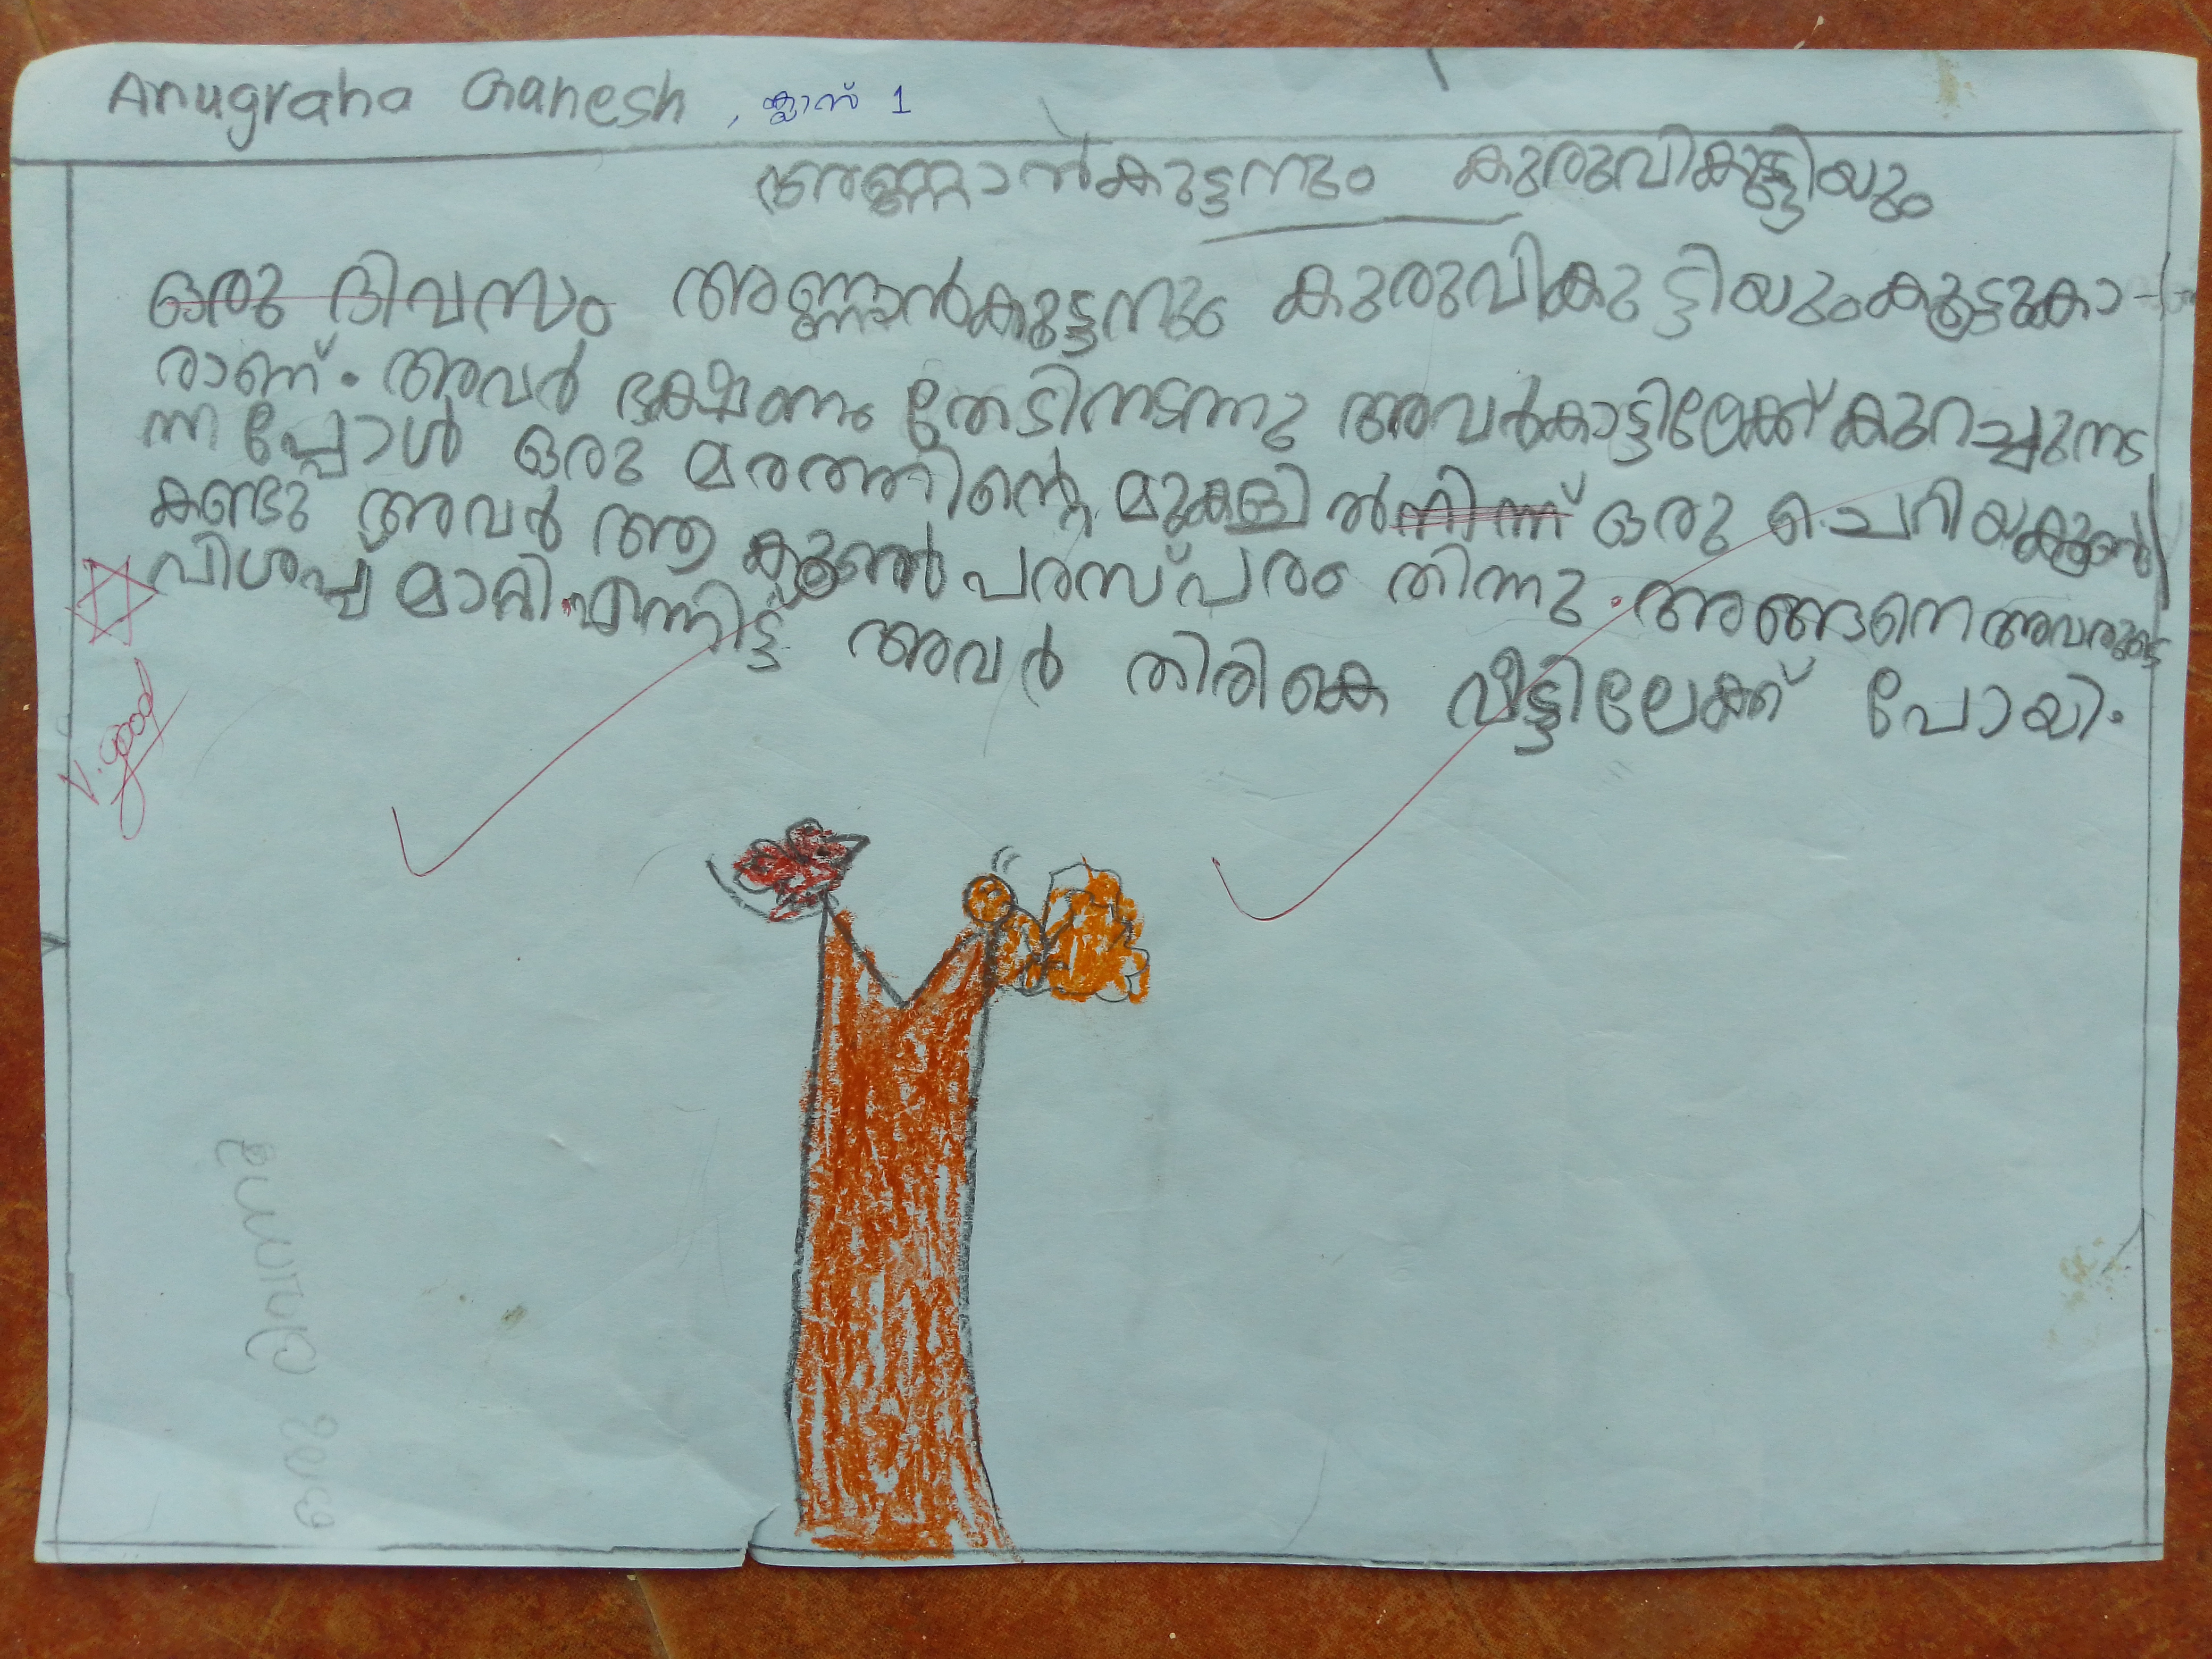 Anugraha Ganesh , ക്ലാസ് 1
അണ്ണാൻകുട്ടനും കുരുവികുട്ടിയും
ഒരു ദിവസം അണ്ണാൻകുട്ടനും കുരുവികുട്ടിയുംകൂട്ടുകാ-
രാണ്. അവർ ഭക്ഷണം തേടിനടന്നു അവർകാട്ടിലേക്ക് കുറച്ചുനട
ന്നപ്പോൾ ഒരു മരത്തിന്റെ മുകളിൽനിന്ന് ഒരു ചെറിയകൂൺ
കണ്ടു അവർ ആ കൂൺ പരസ്പരം തിന്നു. അങ്ങനെ അവരുടെ
വിശപ്പ് മാറി. എന്നിട്ട് അവർ തിരികെ വീട്ടിലേക്ക് പോയി.
V. good